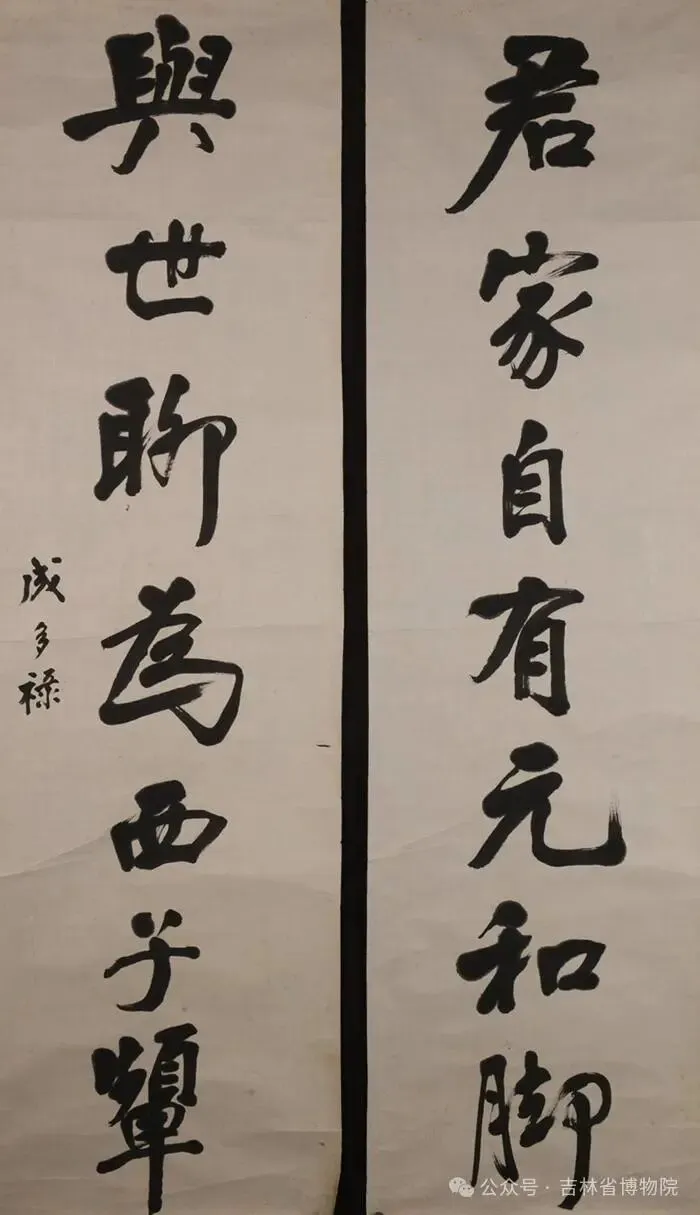 君家自有元和脚
與世聊為西子顰
成多祿
公众号·吉林省博物院